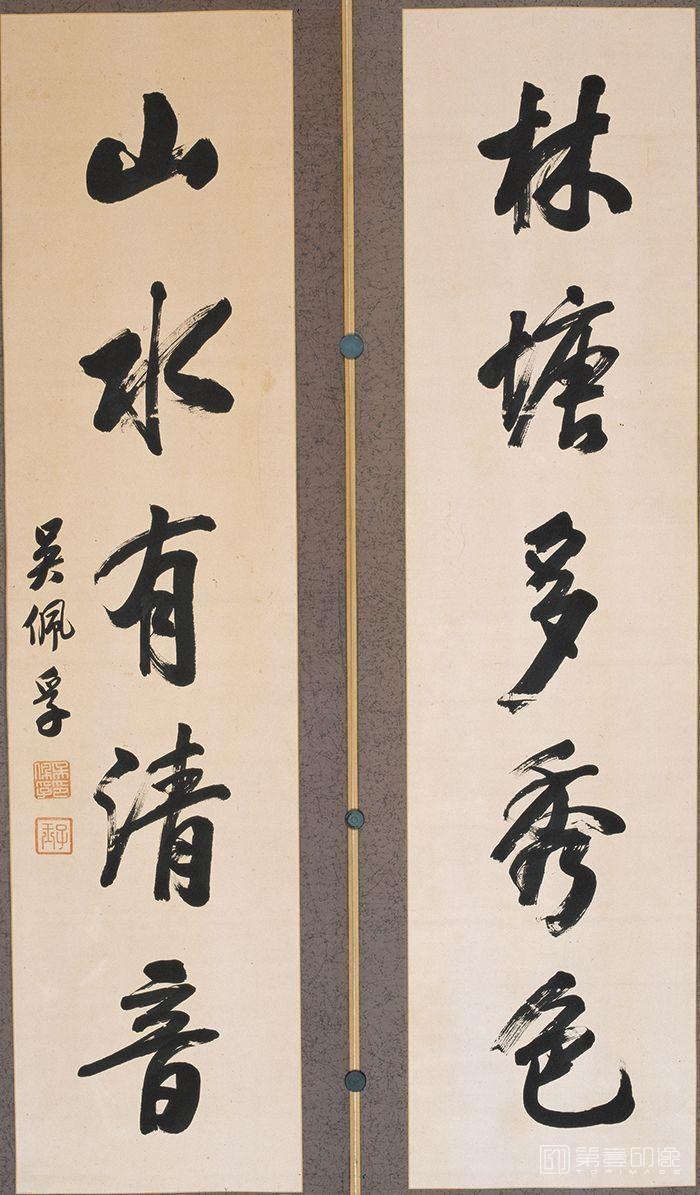 林塘多秀色
山水有清音
吴佩孚
第壹印像
TOPIMAGE